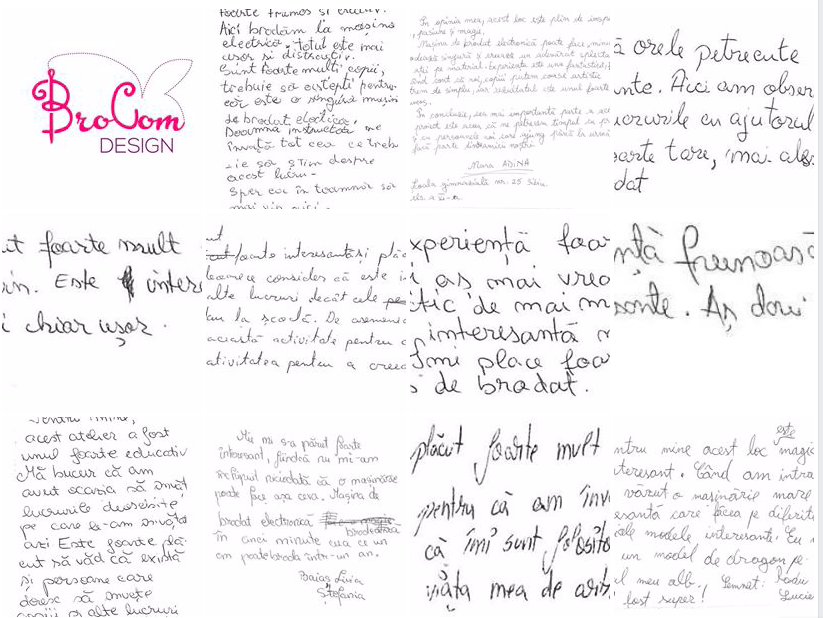 BroCom
DESIGN
foarte frumos și creativ.
Aici brodăm la mașina
electrică. totul este mai
ușor și distractiv.
Sunt foarte mulți copii,
trebuie să aștepți pentru
că este o singură mașină
de brodat electrică.
Doamna instructor ne
învață tot cea ce treb
ie să știm despre
acest lucru.
Sper ca în toamnă să
mai vin aici.
În opinia mea, acest loc este plin de
pasiune și magie.
Mașina de brodat electronică poate face
În concluzie, cea mai importantă parte a
proiect este aceea, că ne petrecem timpul cu
și cu persoanele noi care ajung până la urmă
facă parte
Mara ADINA
Școala gimnazială nr. 25 Sibiu
ă orele petrecute
nte. Aici am obser
ucrurile cu ajutorul
oarte tare, mai ales
dat
ut foarte mult
in. Este inters
i chiar ușor.
ut
foarte interesantă și plăc
deoarece consider că este i
alte lucruri decât cele
au la școală. De asemene
această activitate pentru c
ativitatea pentru a crea
xperiență foar
i aș mai vrea
tic de mai m
interesantă
Îmi place foar
de brodat.
nță frumoasă
sonte. Aș dori
Pentru mine,
acest atelier a fost
unul foarte educativ
Mă bucur că am
avut ocazia să învăț
lucrurile deosebite
pe care le-am învăța
aici Este foarte plă
cut să văd că există
și persoane care
doresc să învețe
copiii și alte lucruri
Mie mi s-a părut foarte
interesant, fiindcă nu mi-am
închipuit niciodată că o mașinărie
poate face așa ceva. Mașina de
brodat electronică
brodează
în cinci minute cea ce un
om poate broda într-un an.
Baiaș Livia
Ștefania
plăcut foarte mult
pentru că am înv
că îmi sunt folosito
viața mea de
este
ntru mine acest loc magic
teresant. Când am intra
văzut o mașinărie mare
esantă care făcea pe diferite
ale modele interesante. Eu
un model de dragon pe
l meu alb. Semnat: Radu
fost super! Lucie